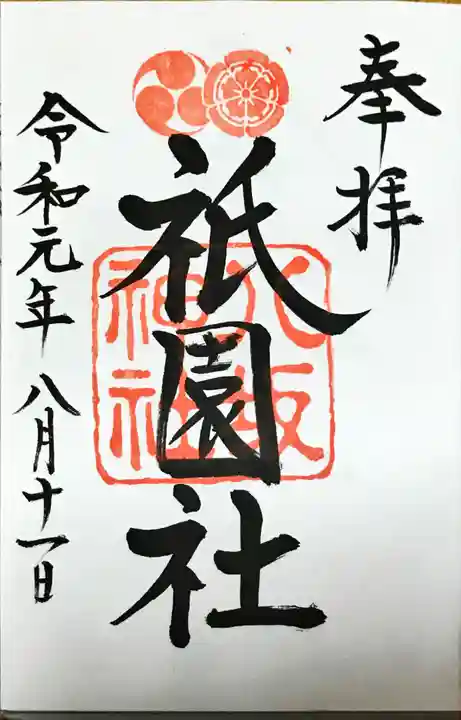 奉拝
祇園社
八坂
神社
令和元年 八月十一日